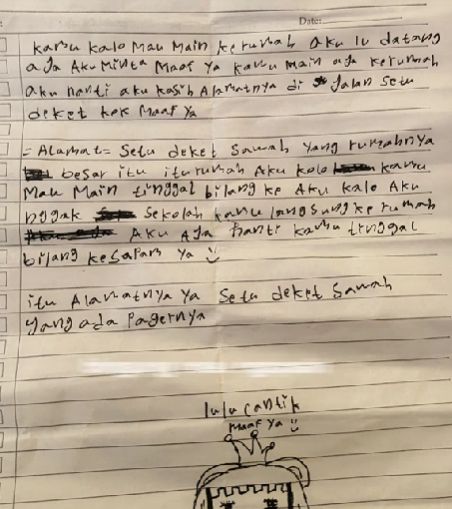 Date:
kamu kalo Mau Main kerumah aku lu datang
aja Aku Minta Maaf Ya kamu main aja kerumah
aku nanti aku kasih Alamatnya di Jalan Setu
deket kok Maaf Ya
= Alamat = Setu deket Sawah Yang rumahnya
besar itu iturumah Aku kalo kamu
Mau Main tinggal bilang ke Aku kalo Aku
nggak Sekolah kamu langsung ke rumah
Aku Aja nanti kamu tinggal
bilang kesapam Ya
itu Alamatnya Ya Setu deket Sawah
Yang ada Pagernya
lulu cantik
Maaf Ya